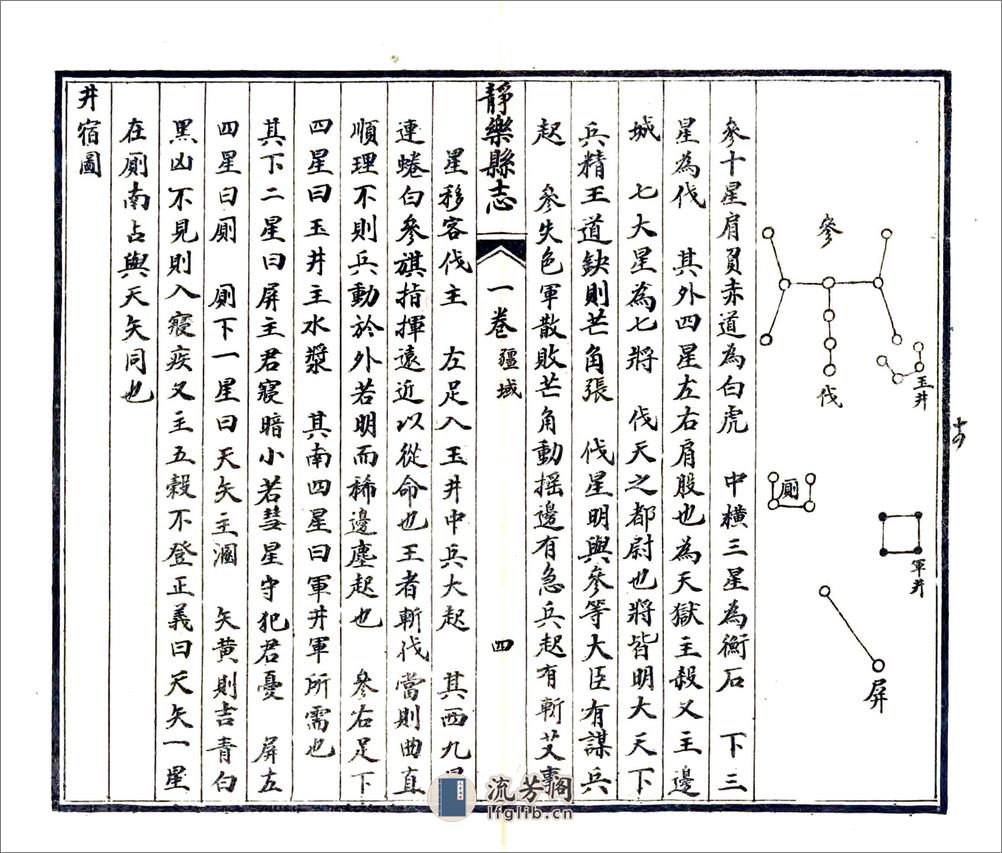 參
伐
玉井
廁
軍井
屏
十四
參十星肩貫赤道為白虎　中橫三星為衡石　下三
星為伐　其外四星左右肩股也為天獄主殺又主邊
城　七大星為七將　伐天之都尉也將皆明大天下
兵精王道缺則芒角張　伐星明與參等大臣有謀兵
起　參失色軍散敗芒角動搖邊有急兵起有斬艾事
靜樂縣志　一卷　疆域　四
星移客伐主　左足入玉井中兵大起　其西九星
連蜷曰參旗指揮遠近以從命也王者斬伐當則曲直
順理不則兵動於外若明而稀邊塵起也　參右足下
四星曰玉井主水漿　其南四星曰軍井軍所需也
其下二星曰屏主君寢暗小若彗星守犯君憂　屏左
四星曰廁　廁下一星曰天矢主溷　矢黃則吉青白
黑凶不見則入寢疾又主五穀不登正義曰天矢一星
在廁南占與天矢同也
井宿圖
流芳阁
lfglib.cn